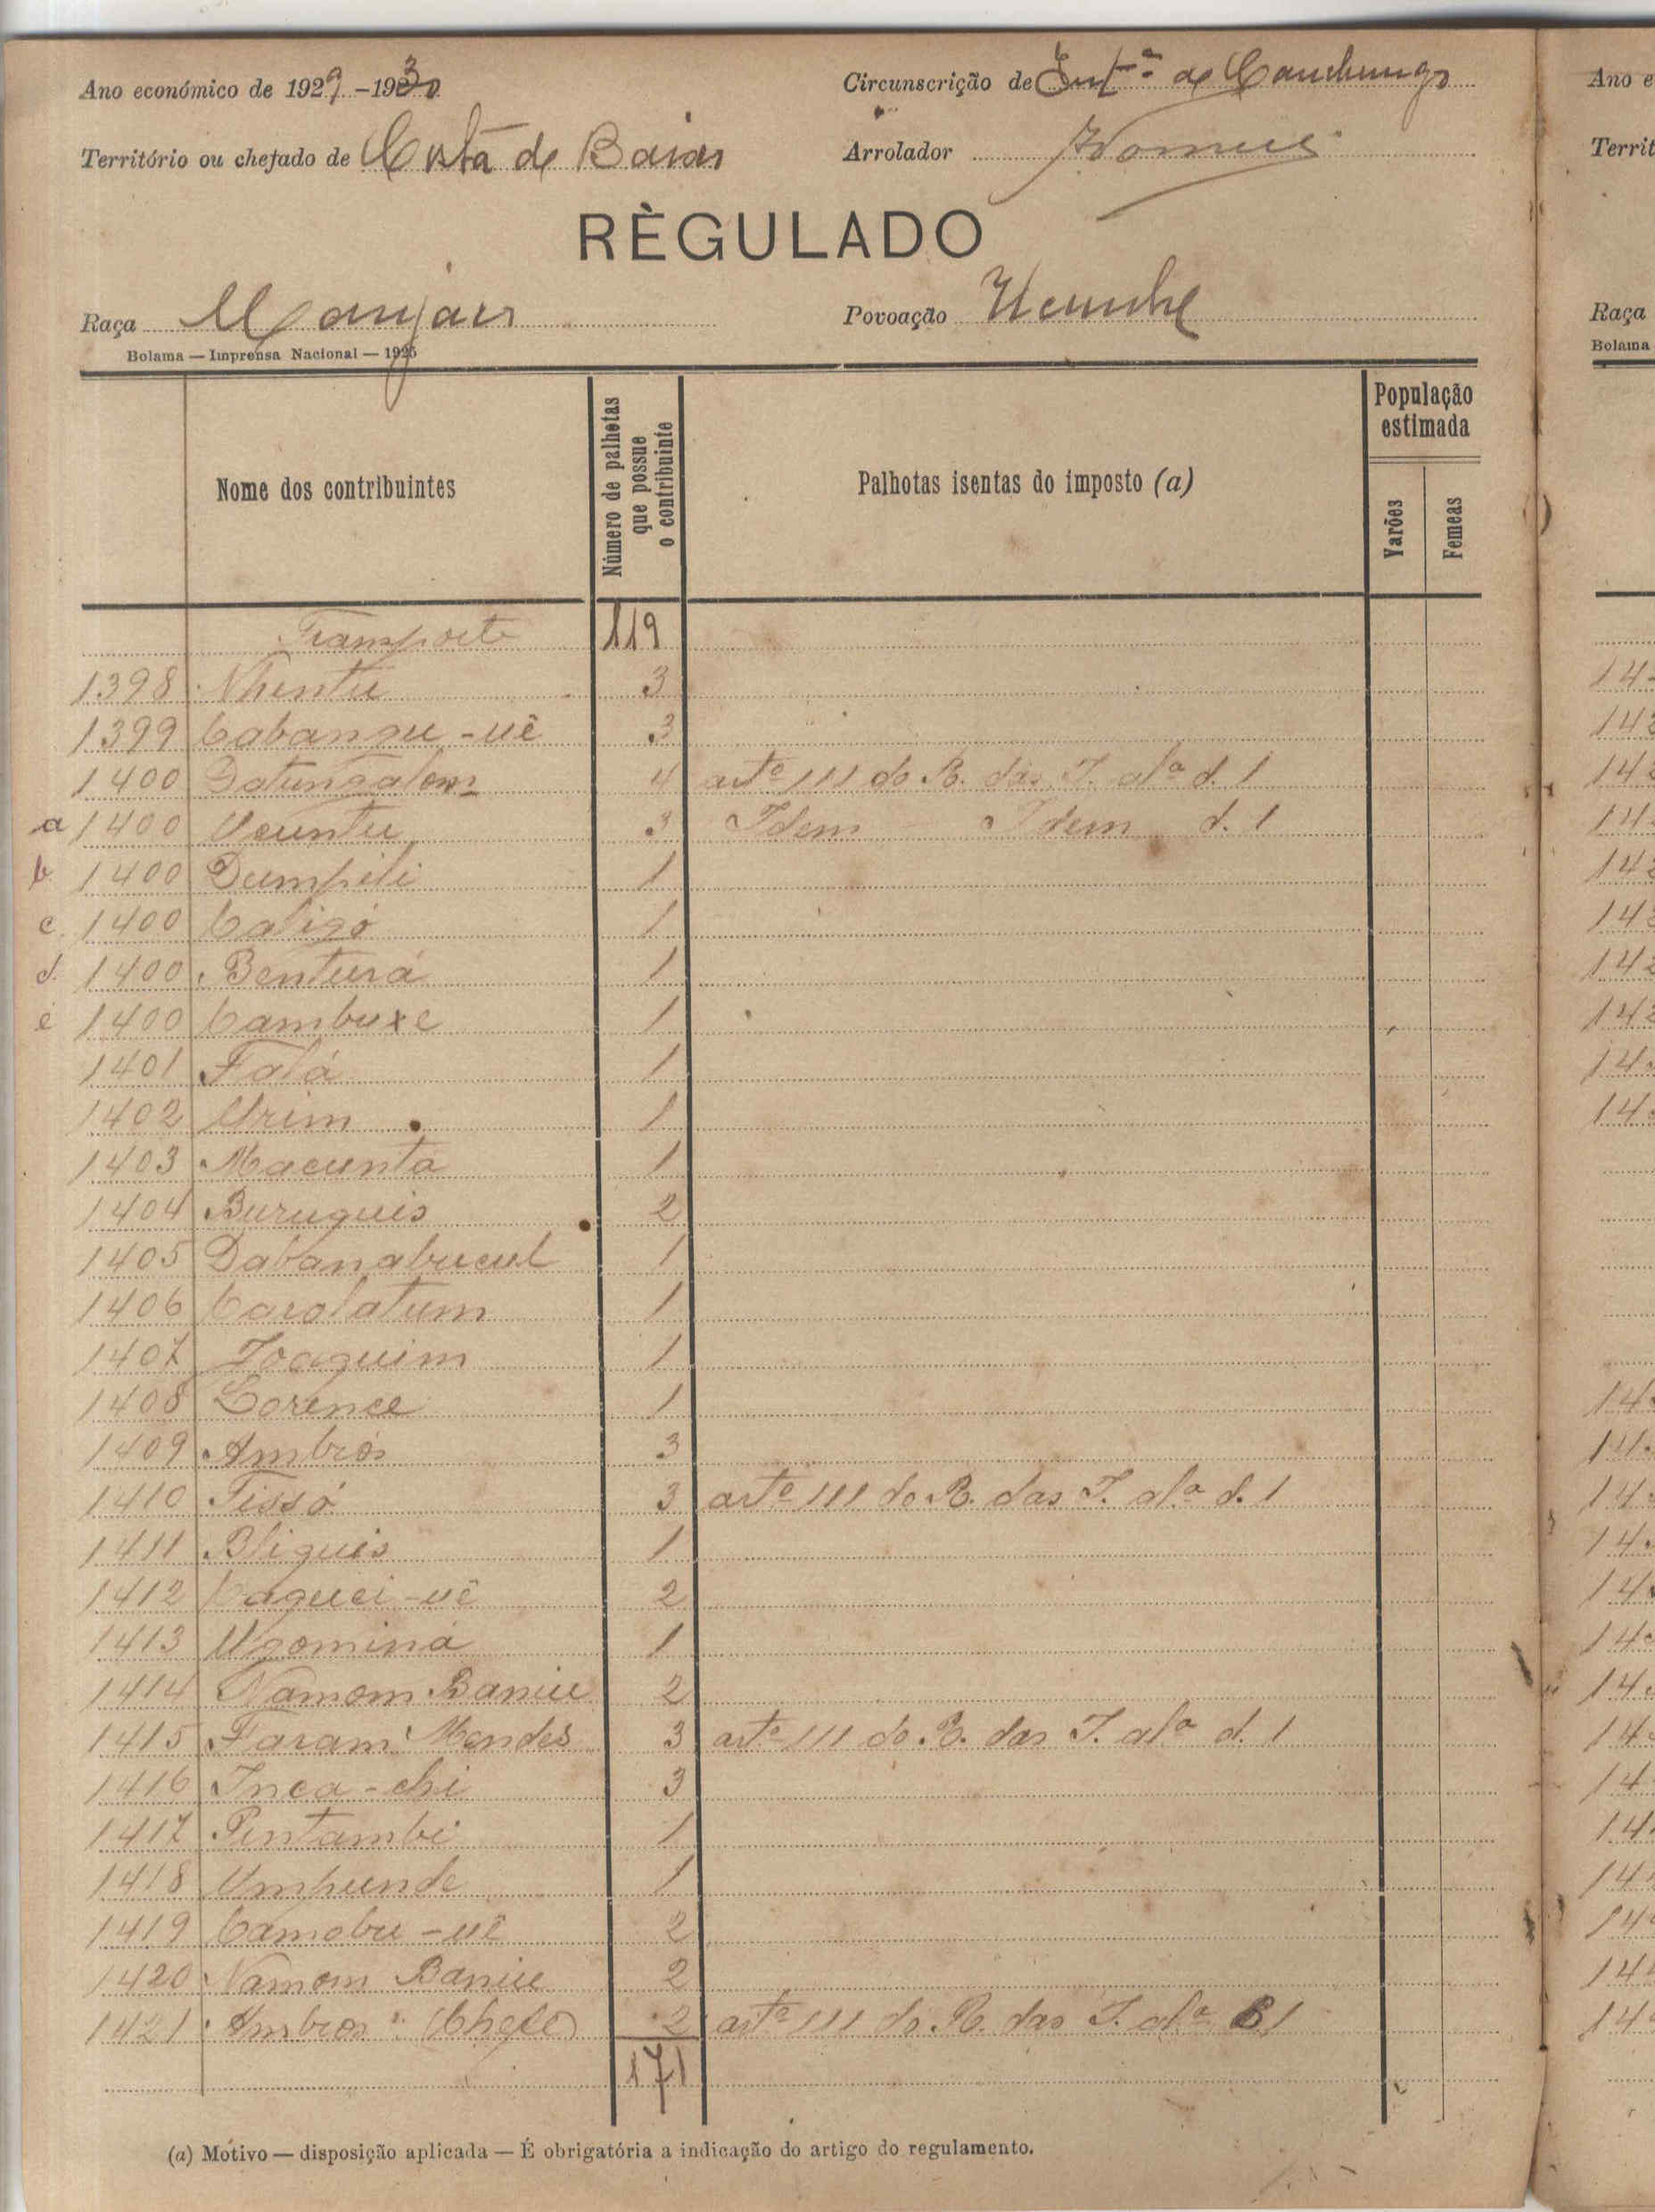 Ano económico de 1929-1930
Circunscrição de de Canchungo
Território ou chefado de Costa de Baixo
Arrolador
RÈGULADO
Raça Manjaco
Povoação
Bolama — Imprensa Nacional — 1925
Nome dos contribuintes
Número de palhotas que possue o contribuinte
Palhotas isentas do imposto (a)
População estimada
Varões
Femeas
Transporte 119
1398 Nhentu 3
1399 Cabangu-uê 3
1400 Datungalom 4 artº 111 do R. das I. alª d. 1
a 1400 Ucuntu 3 Idem Idem d. 1
b 1400 Dumpili 1
c. 1400 Caligó 1
d. 1400 Benturá 1
e 1400 Cambuxe 1
1401 Falá 1
1402 Urim 1
1403 Macunta 1
1404 Buruguis 2
1405 Dabanabucul 1
1406 Carolatum 1
1407 Joaquim 1
1408 Lorence 1
1409 Ambrós 3
1410 Tissó 3 artº 111 do R. das I. alª d. 1
1411 Bliguis 1
1412 Caguei-uê 2
1413 Ugominá 1
1414 Namom Baniu 2
1415 Faram Mendes 3 artº 111 do R. das I. alª d. 1
1416 Inca-chi 3
1417 Pintambi 1
1418 Umpunde 1
1419 Camobu-uê 2
1420 Namom Baniu 2
1421 Ambros (Chefe) 2 artº 111 do R. das I. alª B 1
171
(a) Motivo — disposição aplicada — É obrigatória a indicação do artigo do regulamento.
Ano e
Territ
Raça
Bolama